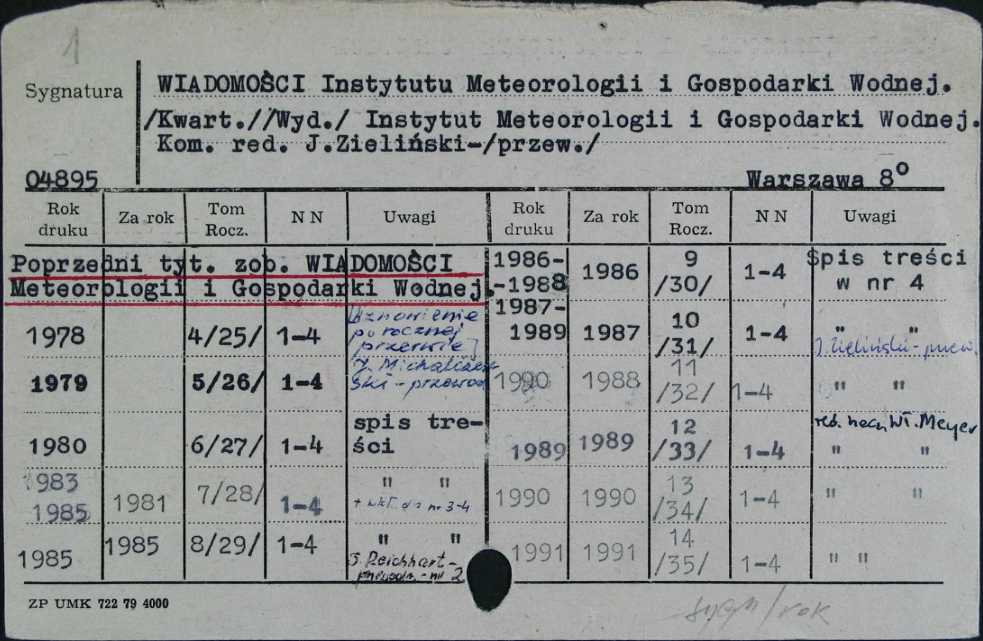 1
Sygnatura
WIADOMOŚCI Instytutu Meteorologii i Gospodarki Wodnej.
/Kwart.//Wyd./ Instytut Meteorologii i Gospodarki Wodnej.
Kom. red. J.Zieliński-/przew./
04895 Warszawa 8º
Rok druku Za rok Tom Rocz. N N Uwagi Rok druku Za rok Tom Rocz. N N Uwagi
Poprzedni tyt. zob. WIADOMOŚCI
Meteorologii i Gospodarki Wodnej.
1978 4/25/ 1-4 Wznowienie po rocznej przerwie J. Michalczewski - przewod
1979 5/26/ 1-4
1980 6/27/ 1-4 spis treści
1983
1985 1981 7/28/ 1-4 " " + wkł. do nr 3-4
1985 1985 8/29/ 1-4 " " J. Reichhart - nr 2
1986-
-1988 1986 9 /30/ 1-4 Spis treści w nr 4
1987-
1989 1987 10 /31/ 1-4 " " J. Zieliński - przew.
1990 1988 11 /32/ 1-4 " "
1989 1989 12 /33/ 1-4 red. nacz. Wł. Meyer " "
1990 1990 13 /34/ 1-4 " "
1991 1991 14 /35/ 1-4 " "
ZP UMK 722 79 4000
/rok